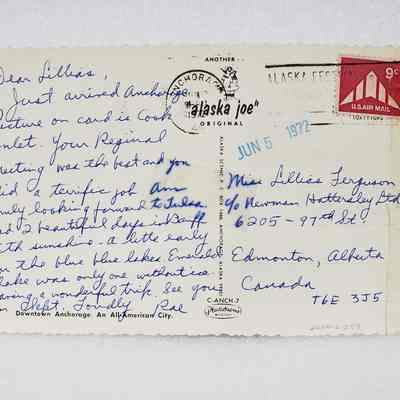 ANOTHER
"alaska joe"
ORIGINAL
ANCHORAGE
ALASKA
9c
U.S. AIR MAIL
JUN 5 1972
Dear Lillias,
Just arrived Anchorage
Picture on card is Cook
Inlet. Your Reginal
Meeting was the best and you
did a terific job Am
looking forward to Tulsa
2 beautiful days in Banff
with sunshine - a little early
for the blue blue lakes Emerald
Lake was only one without ice
Having a wonderful trip. See you
in Sept. Fondly Rae
Downtown Anchorage. An All-American City.
C-ANCH-7
Plastichrome
Miss Lillias Ferguson
c/o Newman Hattersley Ltd
6205-97th St.
Edmonton, Alberta
Canada
T6E 3J5